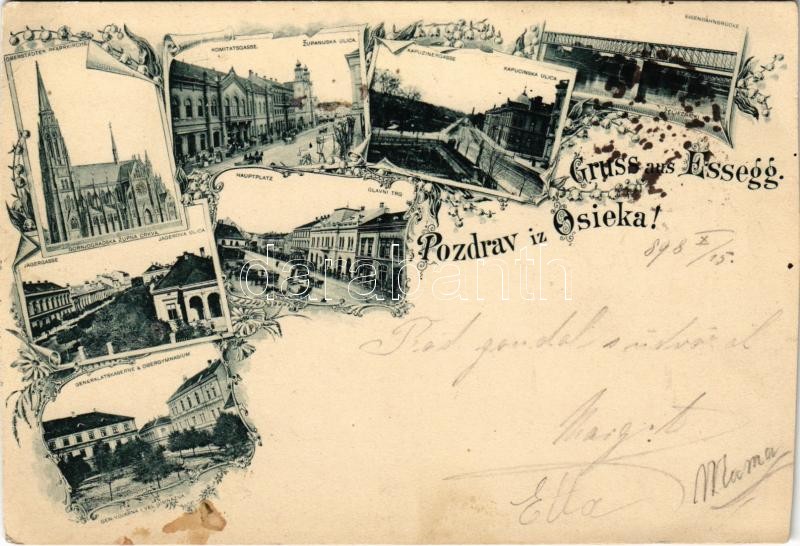 OBERSTÄDTER PFARRKIRCHE
GORNJOGRADSKA ŽUPNA CRKVA
KOMITATSGASSE.
ŽUPANIJSKA ULICA.
KAPUZINERGASSE
KAPUCINSKA ULICA.
EISENBAHNBRÜCKE
HAUPTPLATZ
GLAVNI TRG
JÄGERGASSE
JAGEROVA ULICA
GENERALATSKASERNE & OBERGYMNASIUM.
Gruss aus Essegg.
Pozdrav iz Osieka!
898 X/15.
Rád gondol s üdvözöl
Margit
Ella
Mama
darabanth